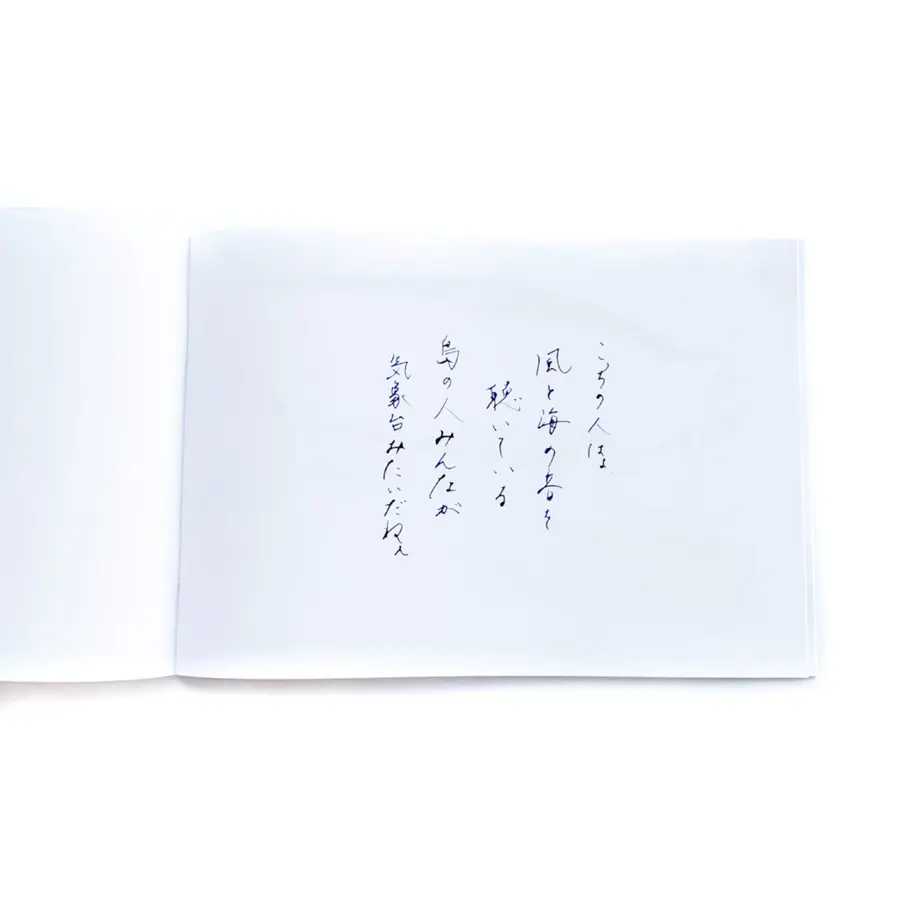 こっちの人は、
風と海の音を
聴いている
島の人みんなが
気象台みたいだねぇ